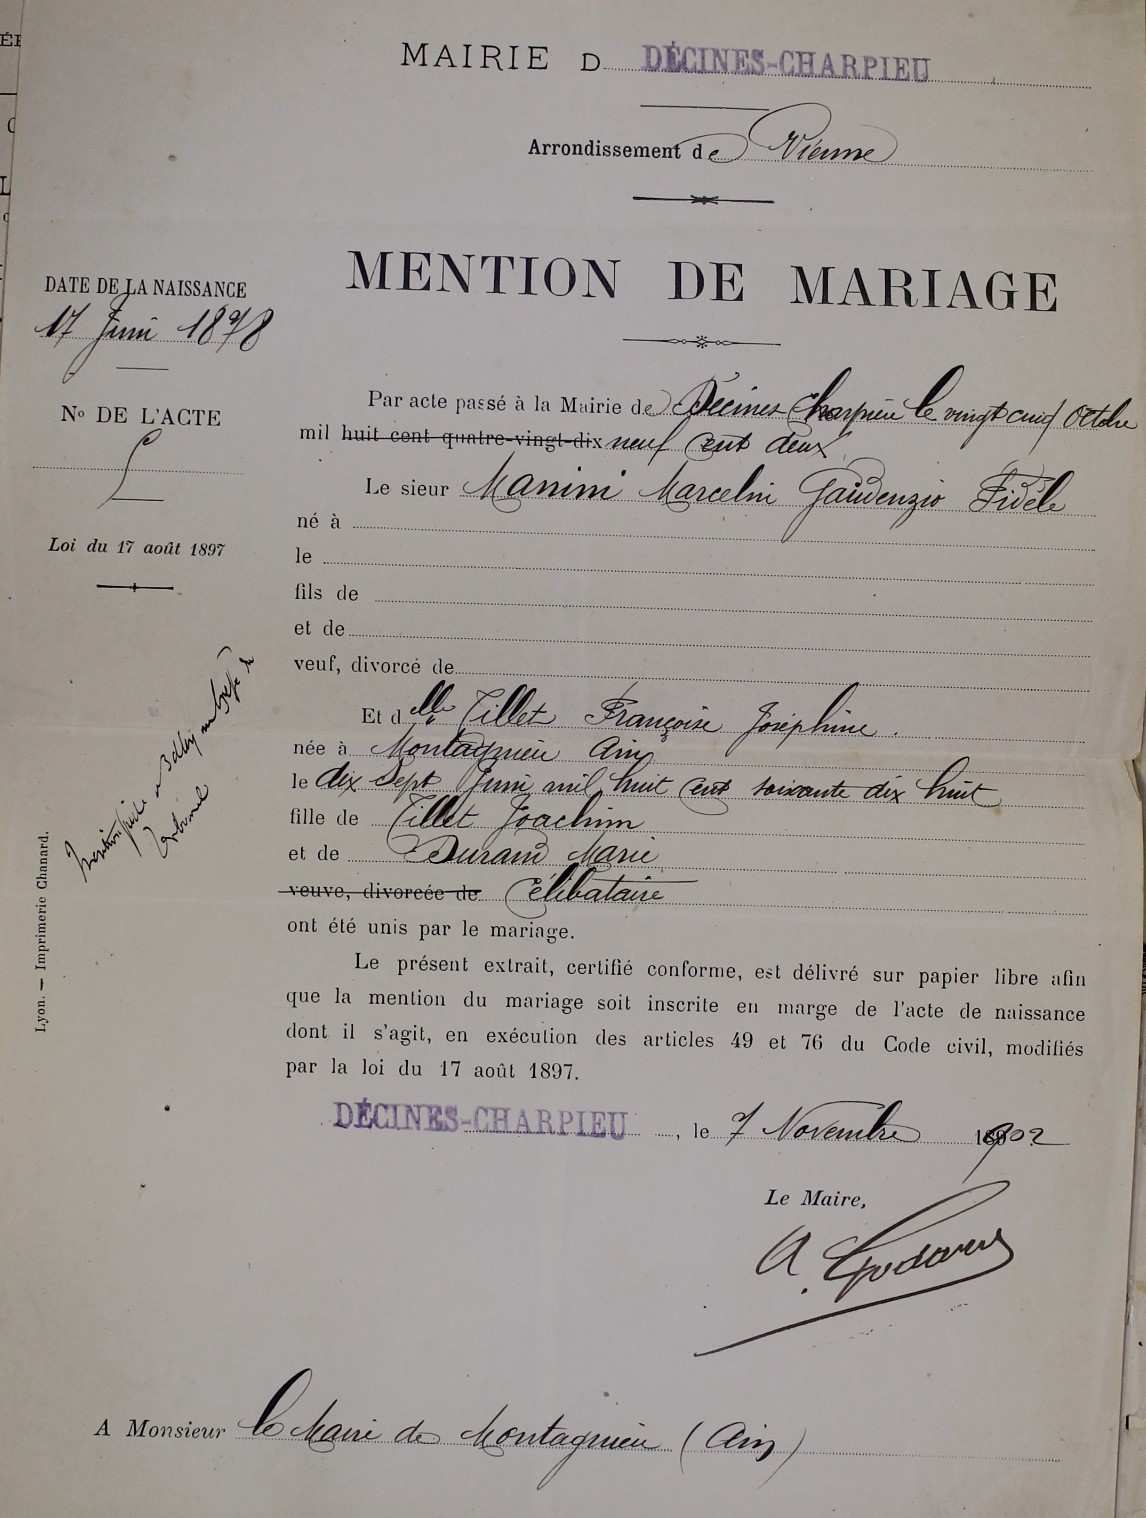 MAIRIE D DÉCINES-CHARPIEU
Arrondissement de Vienne
MENTION DE MARIAGE
DATE DE LA NAISSANCE
17 Juin 1878
No DE L'ACTE
Loi du 17 août 1897
Par acte passé à la Mairie de Décines Charpieu le vingt cinq Octobre
mil huit cent quatre-vingt-dix neuf cent deux
Le sieur Manini Marcelin Gaudenzio Fidèle
né à
le
fils de
et de
veuf, divorcé de
Et dlle Tillet Françoise Joséphine.
née à Montagnieu Ain
le dix Sept Juin mil huit cent soixante dix huit
fille de Tillet Joachim
et de Durand Marie
veuve, divorcée de Célibataire
ont été unis par le mariage.
Le présent extrait, certifié conforme, est délivré sur papier libre afin
que la mention du mariage soit inscrite en marge de l'acte de naissance
dont il s'agit, en exécution des articles 49 et 76 du Code civil, modifiés
par la loi du 17 août 1897.
DÉCINES-CHARPIEU, le 7 Novembre 1902
Le Maire,
A Monsieur le Maire de Montagnieu (Ain)
Lyon. — Imprimerie Chanard.